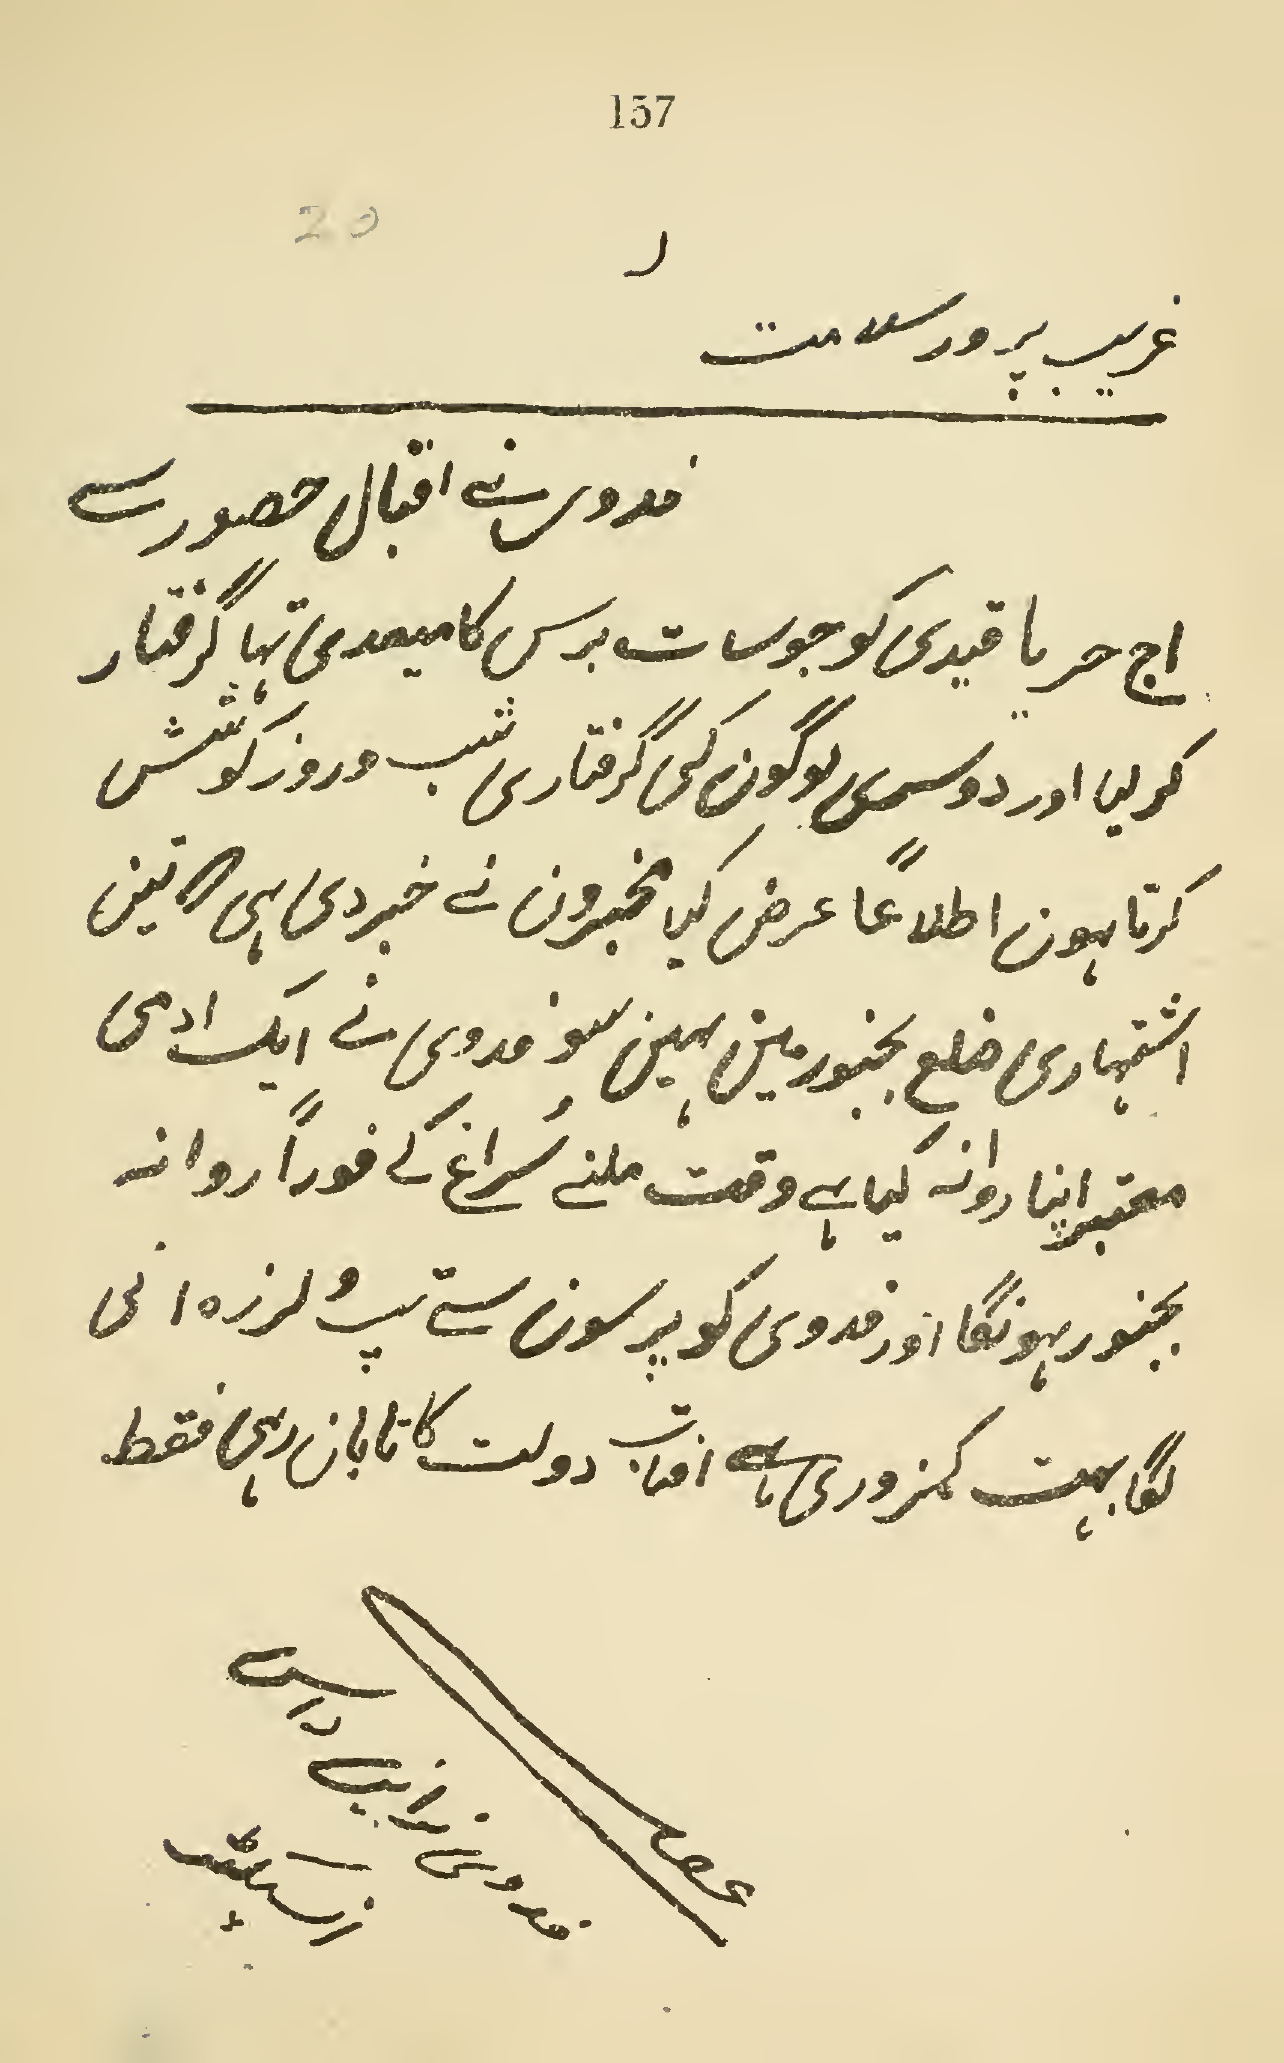 157
20
غریب پرور سلامت
فدوی نے اقبال حضور سے
اج حریا قیدی کو جو سات برس کا میعدی تہا گرفتار
کر لیا اور دوسری لوگون کی گرفتاری شب و روز کوشش
کرتا ہون اطلاعاً عرض کیا مخبرون نے خبر دی ہی کہ تین
اشتہاری ضلع بجنور مین ہین سو فدوی نے ایک ادمی
معتبر اپنا روانہ کیا ہے وقت ملنے سُراغ کے فوراً روانہ
بجنور ہونگا اور فدوی کو پرسون سے تپ و لرزہ انی
لگا بہت کمزوری ہے افتاب دولت کا تابان رہی فقط
فدوی نراین داس
انسپکٹر